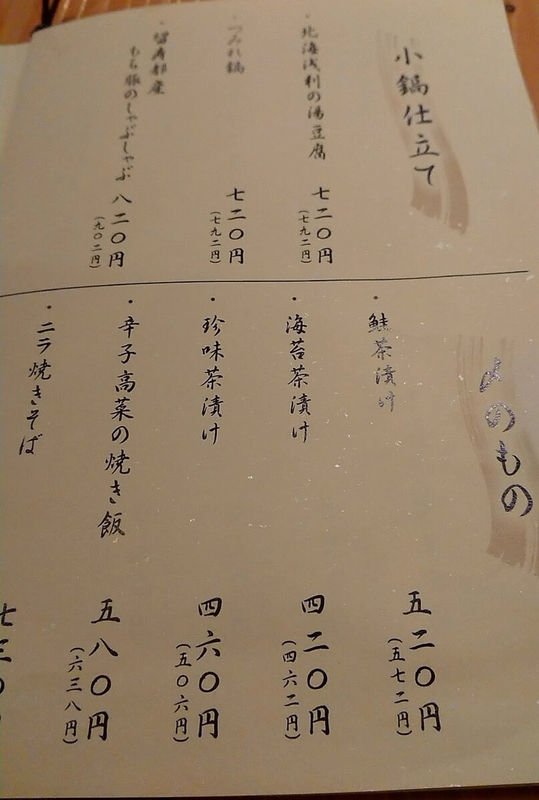 小鍋仕立て
・北海浅利の湯豆腐
七二〇円
(七九二円)
・つみれ鍋
七二〇円
(七九二円)
・留寿都産
もち豚のしゃぶしゃぶ
八二〇円
(九〇二円)
〆のもの
・鮭茶漬け
五二〇円
(五七二円)
・海苔茶漬け
四二〇円
(四六二円)
・珍味茶漬け
四六〇円
(五〇六円)
・辛子高菜の焼き飯
五八〇円
(六三八円)
・ニラ焼きそば
七三〇